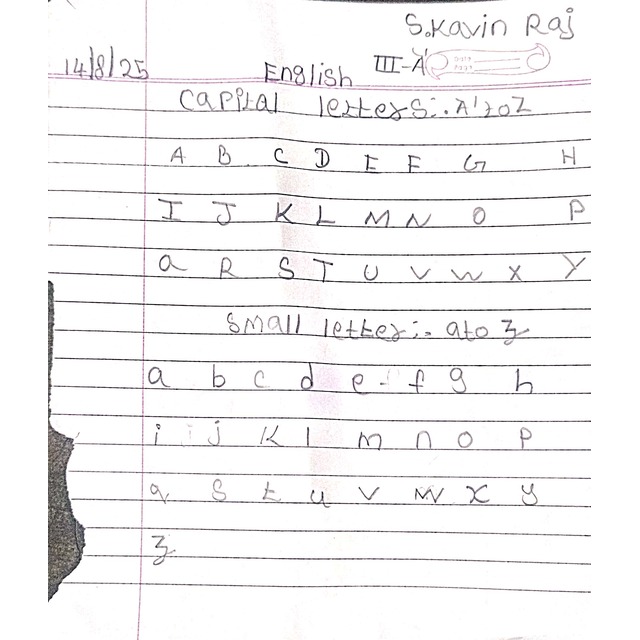 S.Kavin Raj
III-A
14/8/25
English
Capital letters:. A' to Z
A B C D E F G H
I J K L M N O P
a R S T U V W X Y
Small letter:. a to z
a b c d e f g h
i j K l m n o p
q s t u v w x y
z